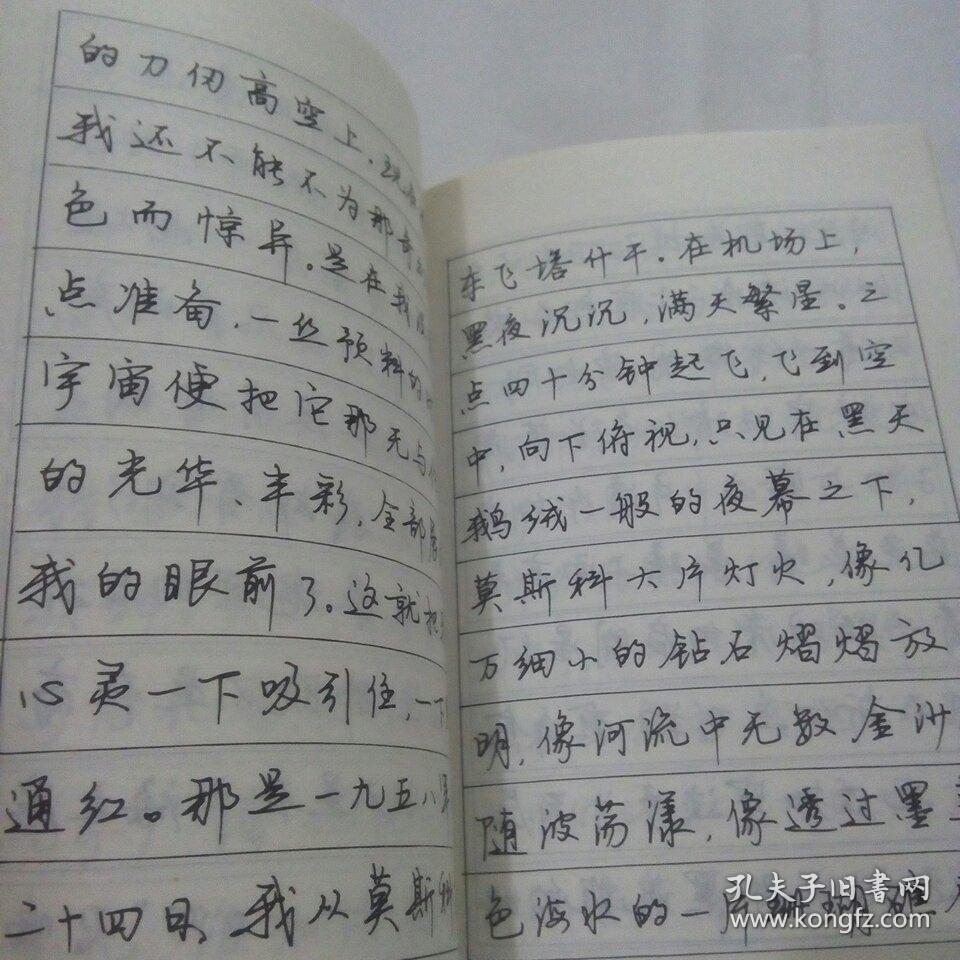 的力仞高空上．现在
我还不能不为那奇
色而惊异。是在我没
点准备，一丝预料的
宇宙便把它那无与
的光华、丰彩，全部
我的眼前了。这就把
心灵一下吸引住，一下
通红。那是一九五八
二十四日，我从莫斯科
东飞塔什干。在机场上，
黑夜沉沉，满天繁星。三
点四十分钟起飞，飞到空
中，向下俯视，只见在黑天
鹅绒一般的夜幕之下，
莫斯科大片灯火，像亿
万细小的钻石熠熠放
明，像河流中无数金沙
随波荡漾，像透过墨
色海水的一片珊瑚礁
孔夫子旧书网
www.kongfz.com